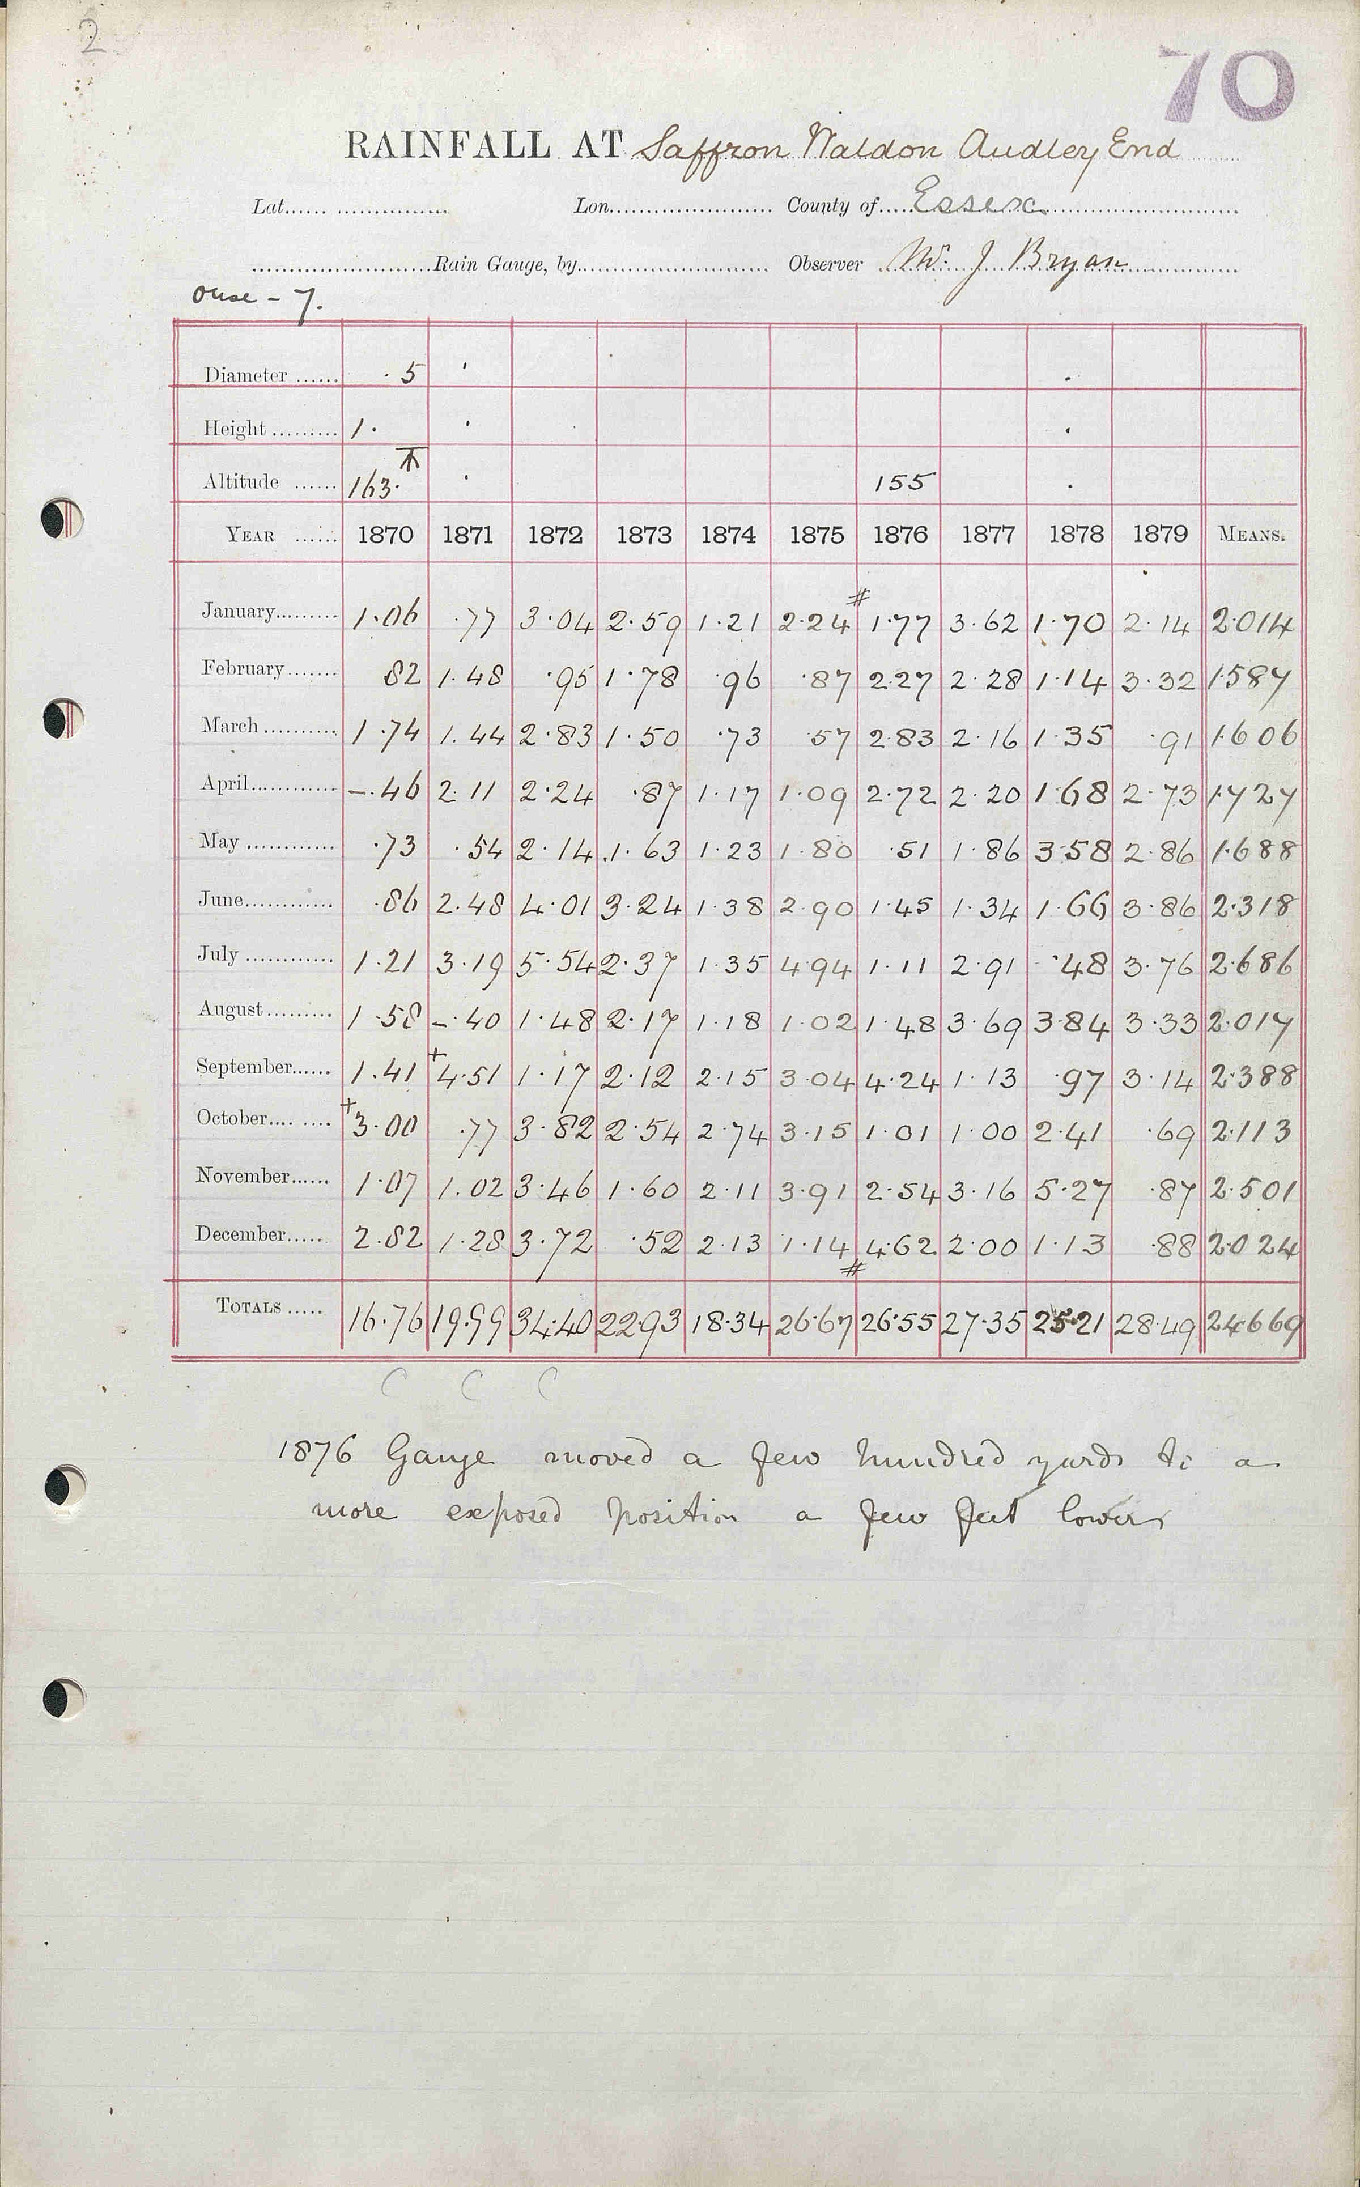 2
70
RAINFALL AT Saffron Waldon Audley End
Lat...... ................ Lon....................... County of.....Essex
.........................Rain Gauge, by.......................... Observer Mr. J Bryan
Ouse - 7.
Diameter ...... .5
Height ......... 1.
Altitude ...... 163. 155
YEAR ...... 1870 1871 1872 1873 1874 1875 1876 1877 1878 1879 MEANS.
January......... 1.06 .77 3.04 2.59 1.21 2.24 # 1.77 3.62 1.70 2.14 2.014
February....... 82 1.48 .95 1.78 .96 .87 2.27 2.28 1.14 3.32 1.587
March ........... 1.74 1.44 2.83 1.50 .73 .57 2.83 2.16 1.35 .91 1.606
April............. -.46 2.11 2.24 .87 1.17 1.09 2.72 2.20 1.68 2.73 1.727
May ............. .73 .54 2.14 1.63 1.23 1.80 .51 1.86 3.58 2.86 1.688
June............. .86 2.48 4.01 3.24 1.38 2.90 1.45 1.34 1.66 3.86 2.318
July ............. 1.21 3.19 5.54 2.37 1.35 4.94 1.11 2.91 .48 3.76 2.686
August.......... 1.58 -.40 1.48 2.17 1.18 1.02 1.48 3.69 3.84 3.33 2.017
September...... 1.41 +4.51 1.17 2.12 2.15 3.04 4.24 1.13 .97 3.14 2.388
October.... .... +3.00 .77 3.82 2.54 2.74 3.15 1.01 1.00 2.41 .69 2.113
November...... 1.07 1.02 3.46 1.60 2.11 3.91 2.54 3.16 5.27 .87 2.501
December...... 2.82 1.28 3.72 .52 2.13 1.14 # 4.62 2.00 1.13 .88 2.024
TOTALS ..... 16.76 19.99 34.40 22.93 18.34 26.67 26.55 27.35 25.21 28.49 24.669
C C C
1876 Gauge moved a few hundred yards to a
more exposed position a few feet lower